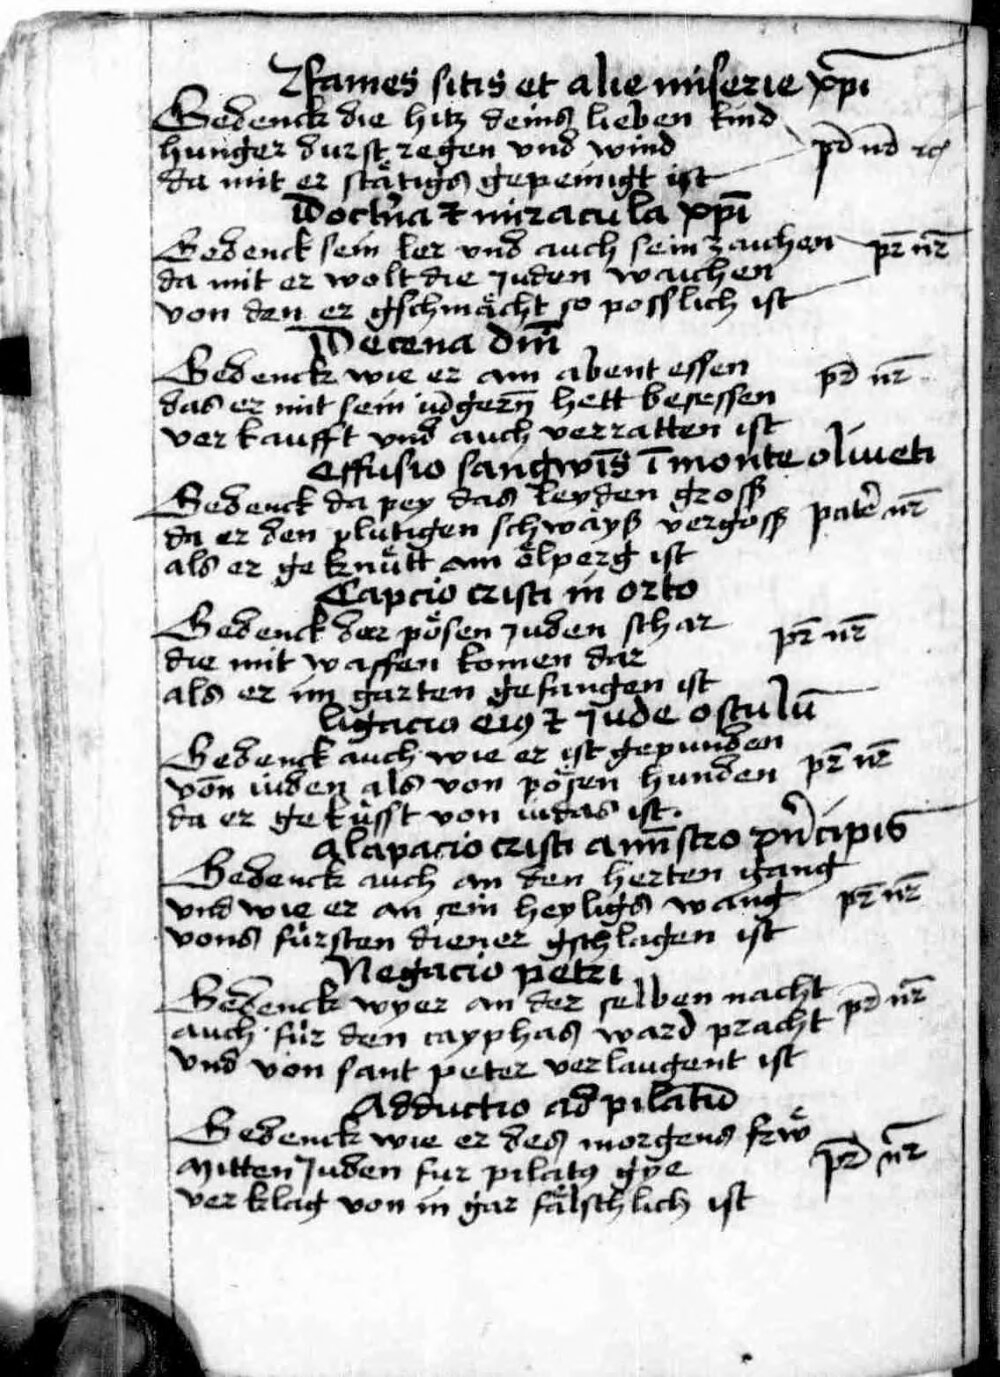 fames sitis et alie miserie xp̄i
Gedenck die hitz deins lieben kind
hunger durst regen vnd wind
pr̄ nr̄ rc̄
da mit er stätigs gepeinigt ist
Doctr̄ina et miracula xp̄i
Gedenck sein ler vnd auch sein zaichen
pr̄ nr̄
da mit er wolt die Juden waichen
von den er gschmächt so posslich ist
De cena dn̄i
Gedenck wie er am abent essen
pr̄ nr̄
das er mit sein iūgern̄ hett besessen
verkaufft vnd auch verratten ist
Effusio sangwīs ī monte oliueti
Gedenck da pey das leyden gross
pater nr̄
da er den plutigen schwayß vergoss
als er geknütt am ölperg ist
Capcio cristi in orto
Gedenck der pösen Juden schar
pr̄ nr̄
die mit waffen komen dar
als er im garten gefangen ist
ligacio eiꝰ et Jude osculū
Gedenck auch wie er ist gepunden
pr̄ nr̄
von̄ iuden als von pösen hunden
da er geküsst von iudas ist.
Alapacio cristi a mīstro prīcipis
Gedenck auch an den herten gang
pr̄ nr̄
vnd wie er an sein heyligs wang
vons fürsten diener gschlagen ist
Negacio petri
Gedenck wyer an der selben nacht
pr̄ nr̄
auch für den cayphas ward pracht
vnd von sant peter verlaugent ist
Adductio ad pilatū
Gedenck wie er des morgens frw̄
pr̄ nr̄
Mitten Juden fur pilatꝰ gye
verklag von in gar fälschlich ist